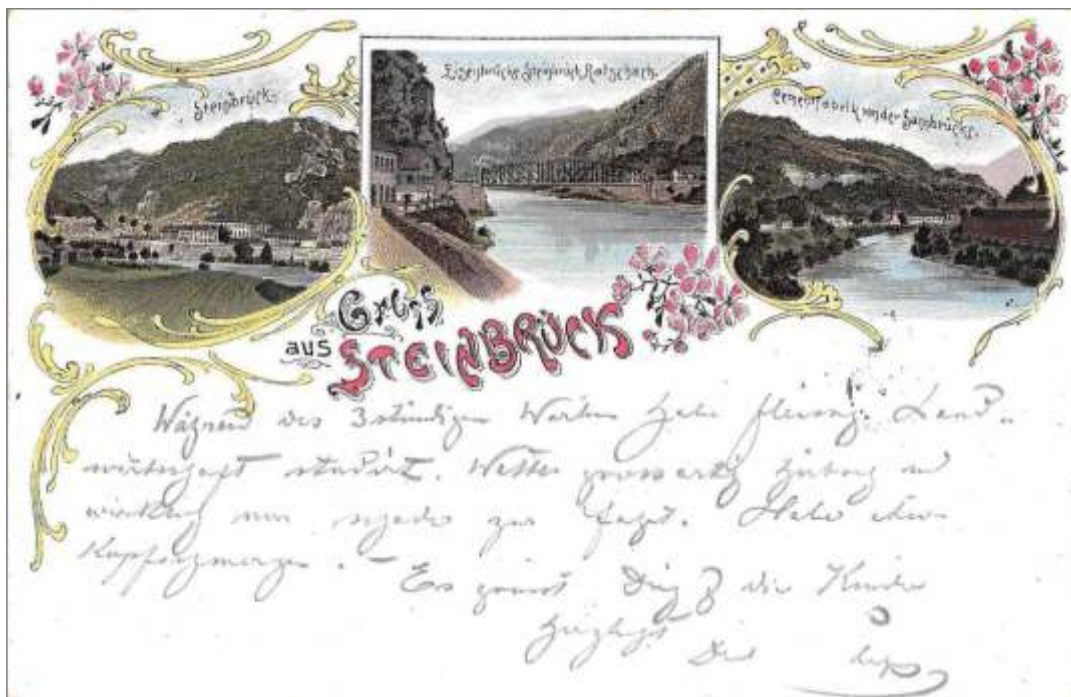 Steinbrück.
Eisenbrücke Steinbrück Ratschach.
Cementfabrik von der Sannbrücke.
Gruss
aus
STEINBRÜCK
Während des 3stündigen Wartens habe fleissig Land-
wirtschaft studirt. Wetter grossartig
wirklich nur schade zur Fahrt. Habe etwas
Kopfschmerzen. – Es grüsst Dich & die Kinder
herzlichst
Dein